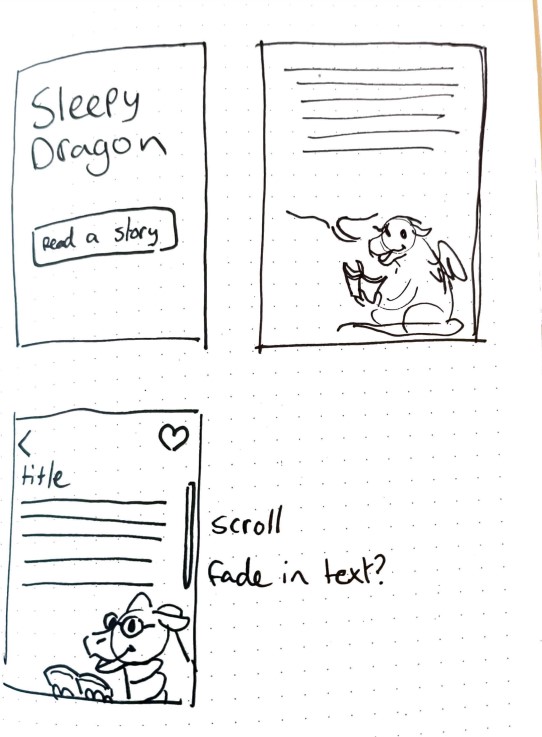 Sleepy
Dragon
Read a story
<
title
scroll
fade in text?